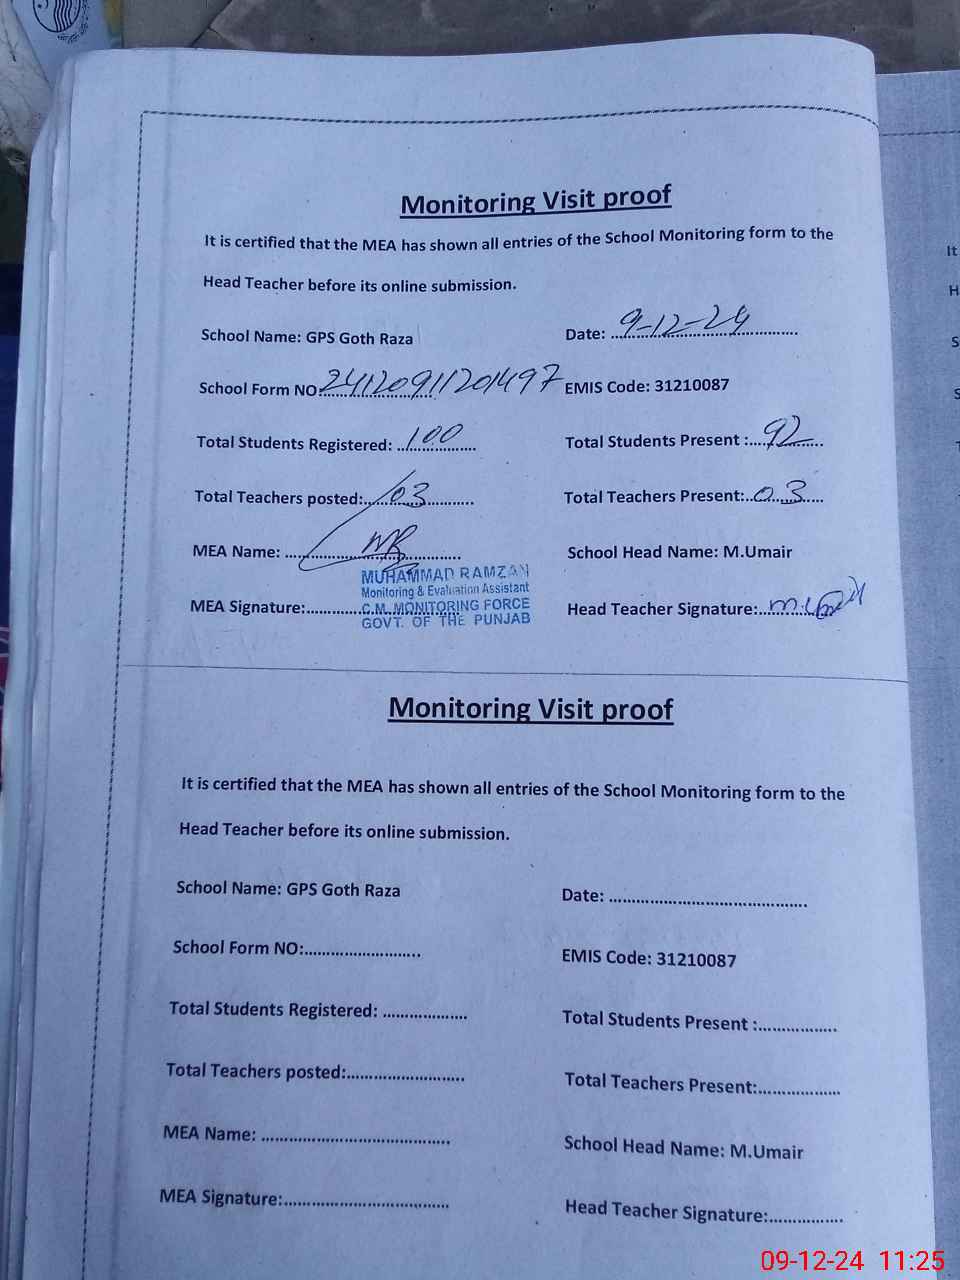 Monitoring Visit proof
It is certified that the MEA has shown all entries of the School Monitoring form to the
Head Teacher before its online submission.
School Name: GPS Goth Raza
Date: 9-12-24
School Form NO: 24120911201497 EMIS Code: 31210087
Total Students Registered: 100
Total Students Present : 92
Total Teachers posted: 03
Total Teachers Present: 03
MEA Name: MR
School Head Name: M.Umair
MUHAMMAD RAMZAN
Monitoring & Evaluation Assistant
C.M. MONITORING FORCE
GOVT. OF THE PUNJAB
MEA Signature:
Head Teacher Signature:
Monitoring Visit proof
It is certified that the MEA has shown all entries of the School Monitoring form to the
Head Teacher before its online submission.
School Name: GPS Goth Raza
Date: ..........................................
School Form NO:.........................
EMIS Code: 31210087
Total Students Registered: ..................
Total Students Present :.................
Total Teachers posted:.........................
Total Teachers Present:..................
MEA Name: ........................................
School Head Name: M.Umair
MEA Signature:...................................
Head Teacher Signature:................
09-12-24 11:25